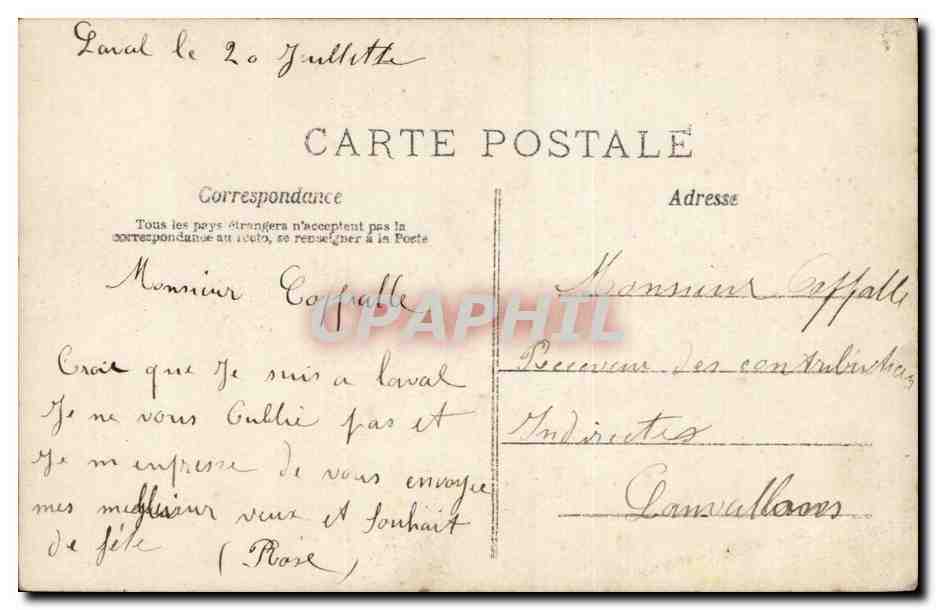 Laval le 20 Jullette
CARTE POSTALE
Correspondance
Tous les pays étrangers n'acceptent pas la
correspondance au recto, se renseigner à la Poste
Monsieur Coffalle
Croie que Je suis a laval
Je ne vous Oublie pas et
Je m enpresse de vous envoyee
mes meilleiur veux et Souhait
de féte (Rose)
Adresse
Monsieur Coffalle
Receveur des contributions
Indirectes
Lanvallons
CPAPHIL